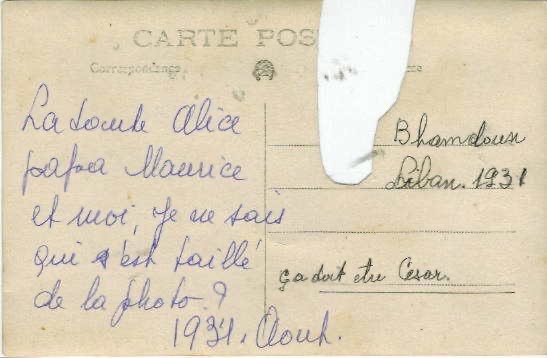 CARTE POS
Correspondance
La tante Alice
papa Maurice
et moi, Je ne sais
qui s'est taillé
de la photo?
1931. Aout.
Bhamdoun
Liban. 1931
ça doit etre César.